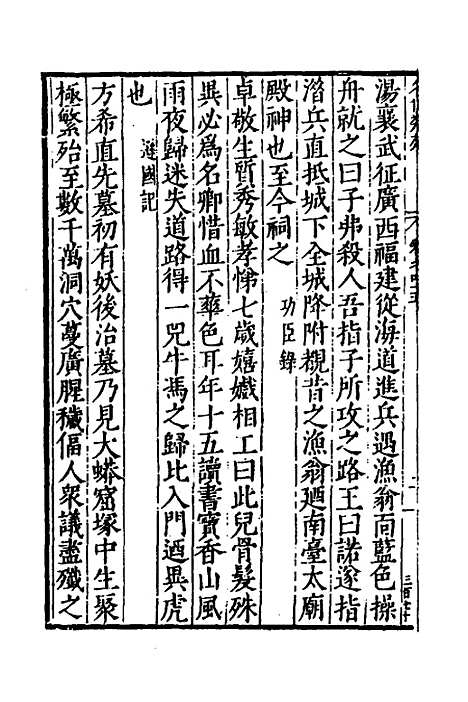 湯襄武征廣西福建從海道進兵遇漁翁面藍色操
舟就之曰子弗殺人吾指子所攻之路王曰諾遂指
潛兵直抵城下全城降附覩昔之漁翁廼南臺太廟
殿神也至今祠之 功臣錄
卓敬生質秀敏孝悌七歲嬉戲相工曰此兒骨髮殊
異必為名卿惜血不華色耳年十五讀書寶香山風
雨夜歸迷失道路得一兕牛馮之歸比入門迺異虎
也 遜國記
方希直先墓初有妖後治墓乃見大蟒窟塚中生聚
極繁殆至數千萬洞穴蔓廣腥穢偪人衆議盡殲之